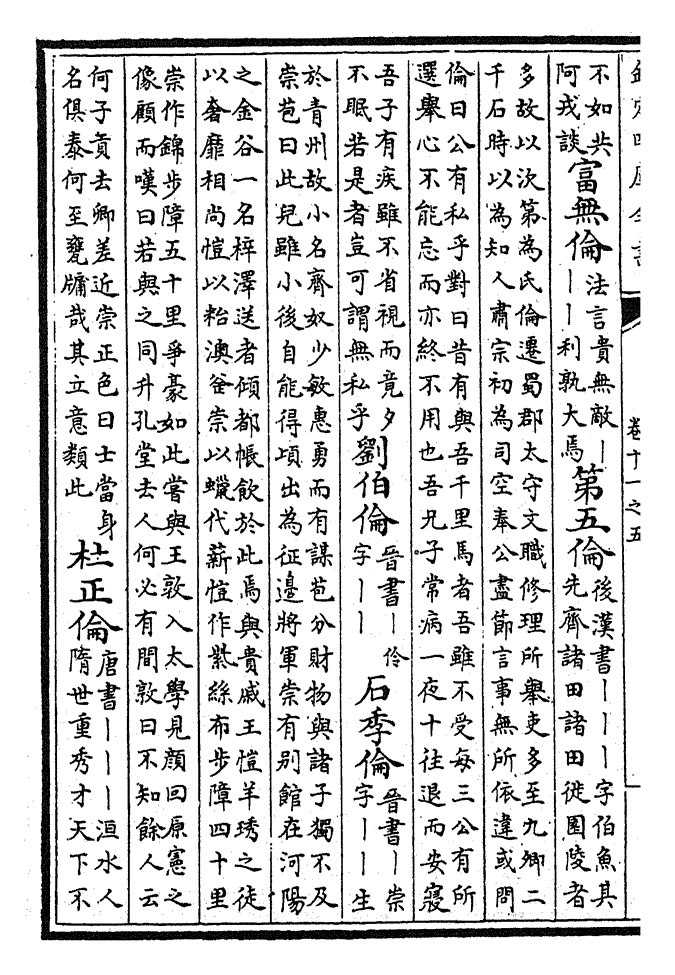 欽定四庫全書
卷十一之五
不如共
阿戎談
富無倫
法言貴無敵丨
丨丨利孰大焉
第五倫
後漢書丨丨丨字伯魚其
先齊諸田諸田徙園陵者
多故以次第為氏倫遷蜀郡太守文職修理所舉吏多至九卿二
千石時以為知人肅宗初為司空奉公盡節言事無所依違或問
倫曰公有私乎對曰昔有與吾千里馬者吾雖不受每三公有所
選舉心不能忘而亦終不用也吾兄子常病一夜十往退而安寢
吾子有疾雖不省視而竟夕
不眠若是者豈可謂無私乎
劉伯倫
晉書丨伶
字丨丨
石季倫
晉書丨崇
字丨丨生
於青州故小名齊奴少敏惠勇而有謀苞分財物與諸子獨不及
崇苞曰此兒雖小後自能得項出為征邊將軍崇有別館在河陽
之金谷一名梓澤送者傾都帳飲於此焉與貴戚王愷羊琇之徒
以奢靡相尚愷以粘澳釜崇以蠟代薪愷作紫絲布步障四十里
崇作錦步障五十里爭豪如此嘗與王敦入太學見顏回原憲之
像顧而嘆曰若與之同升孔堂去人何必有間敦曰不知餘人云
何子貢去卿差近崇正色曰士當身
名俱泰何至甕牖哉其立意類此
杜正倫
唐書丨丨丨洹水人
隋世重秀才天下不